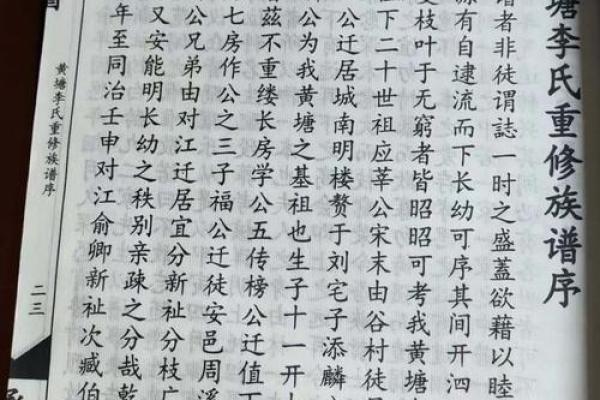 塘李氏重修族谱序
者非徒谓誌一时之盛蓋欲藉以睦
源有自逮流而下长幼可序其间开泗
枝叶于无窮者皆昭昭可考我黄塘
下二十世祖应莘公宋末由谷村徒
公迁居城南明楼赘于刘宅子添麟
公为我黄塘之基祖也生子十一开
兹不重缕长房学公五传榜公迁值
七房作公之三子福公迁徒安邑周溪
公兄弟由对江迁居宜分新祉分枝广
又安能明长幼之秩别亲疎之分哉乾
年至同治壬申对江俞卿新祉次臧伯
黄塘李氏重修族谱序
二三